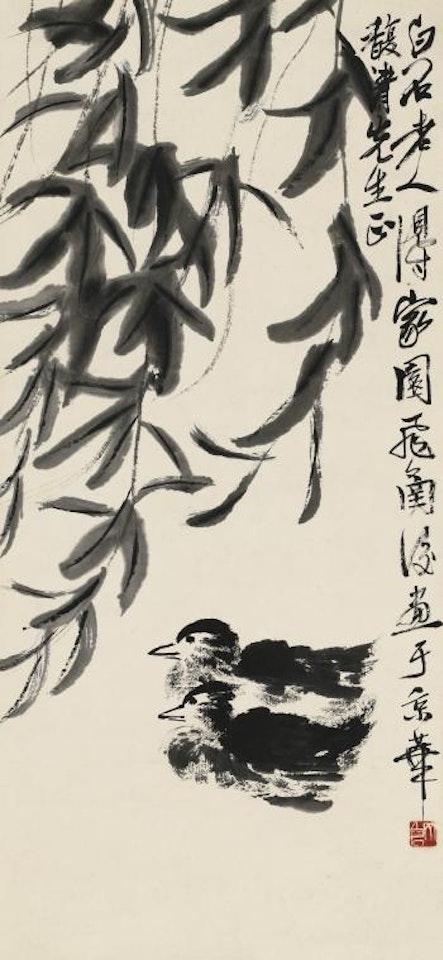 白石老人得家園飛後畫于京華
馥菁先生正